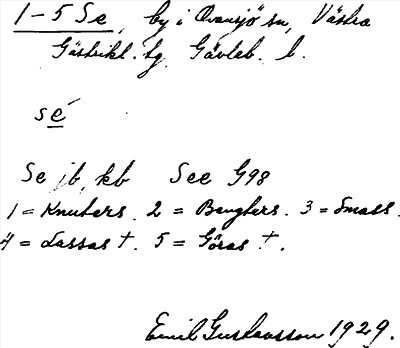 1-5 Se, by i Ovansjö sn, Västra
Gästrikl. tg. Gävleb. l.
sé
Se jb, kb See G98
1 = Knuters. 2 = Bengters. 3 = Smass.
4 = Lassas †. 5 = Göras †.
Emil Gustavsson 1929.